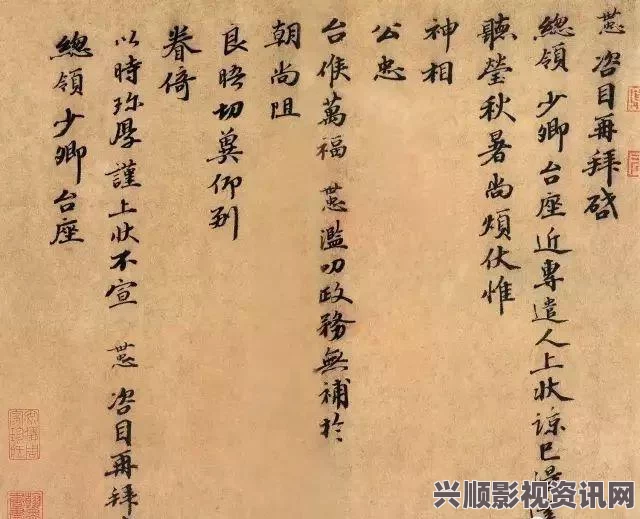 世忠咨目再拜啓
總領少卿台座近專遣人上狀諒已
聽瑩秋暑尚煩伏惟
神相
公忠
台候萬福世忠濫叨政務無補於
朝尚阻
良晤切冀仰副
眷倚
以時珍厚謹上狀不宣世忠咨目再拜
總領少卿台座
兴顺影视资讯网